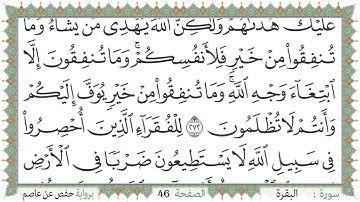 عَلَيْكَ هُدَىٰهُمْ وَلَٰكِنَّ ٱللَّهَ يَهْدِى مَن يَشَآءُ ۗ وَمَا
تُنفِقُوا۟ مِنْ خَيْرٍ فَلِأَنفُسِكُمْ ۚ وَمَا تُنفِقُونَ إِلَّا
ٱبْتِغَآءَ وَجْهِ ٱللَّهِ ۚ وَمَا تُنفِقُوا۟ مِنْ خَيْرٍ يُوَفَّ إِلَيْكُمْ
وَأَنتُمْ لَا تُظْلَمُونَ ٢٧٢ لِلْفُقَرَآءِ ٱلَّذِينَ أُحْصِرُوا۟
فِى سَبِيلِ ٱللَّهِ لَا يَسْتَطِيعُونَ ضَرْبًا فِى ٱلْأَرْضِ
سورة : البقرة الصفحة 46 برواية حفص عن عاصم